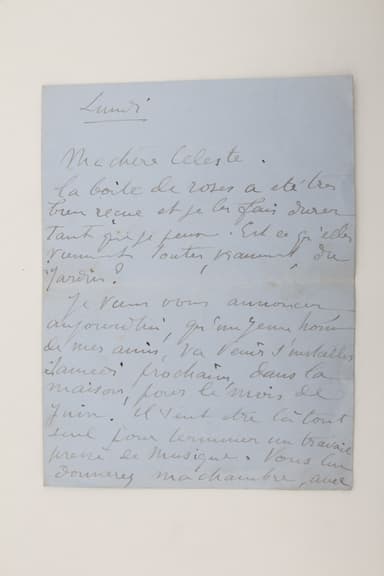 Lundi
Ma chère Céleste.
la boîte de roses a été très
bien reçue et je les fais durer
tant que je peux. Est ce qu'elles
viennent toutes vraiment du
jardin?
Je viens vous annoncer
aujourd'hui, qu'un jeune hom
de mes amis, va venir s'installer
samedi prochain dans la
maison, pour le mois de
Juin. Il veut être là tout
seul pour terminer un travail
pressé de musique. Vous lui
donnerez ma chambre, avec